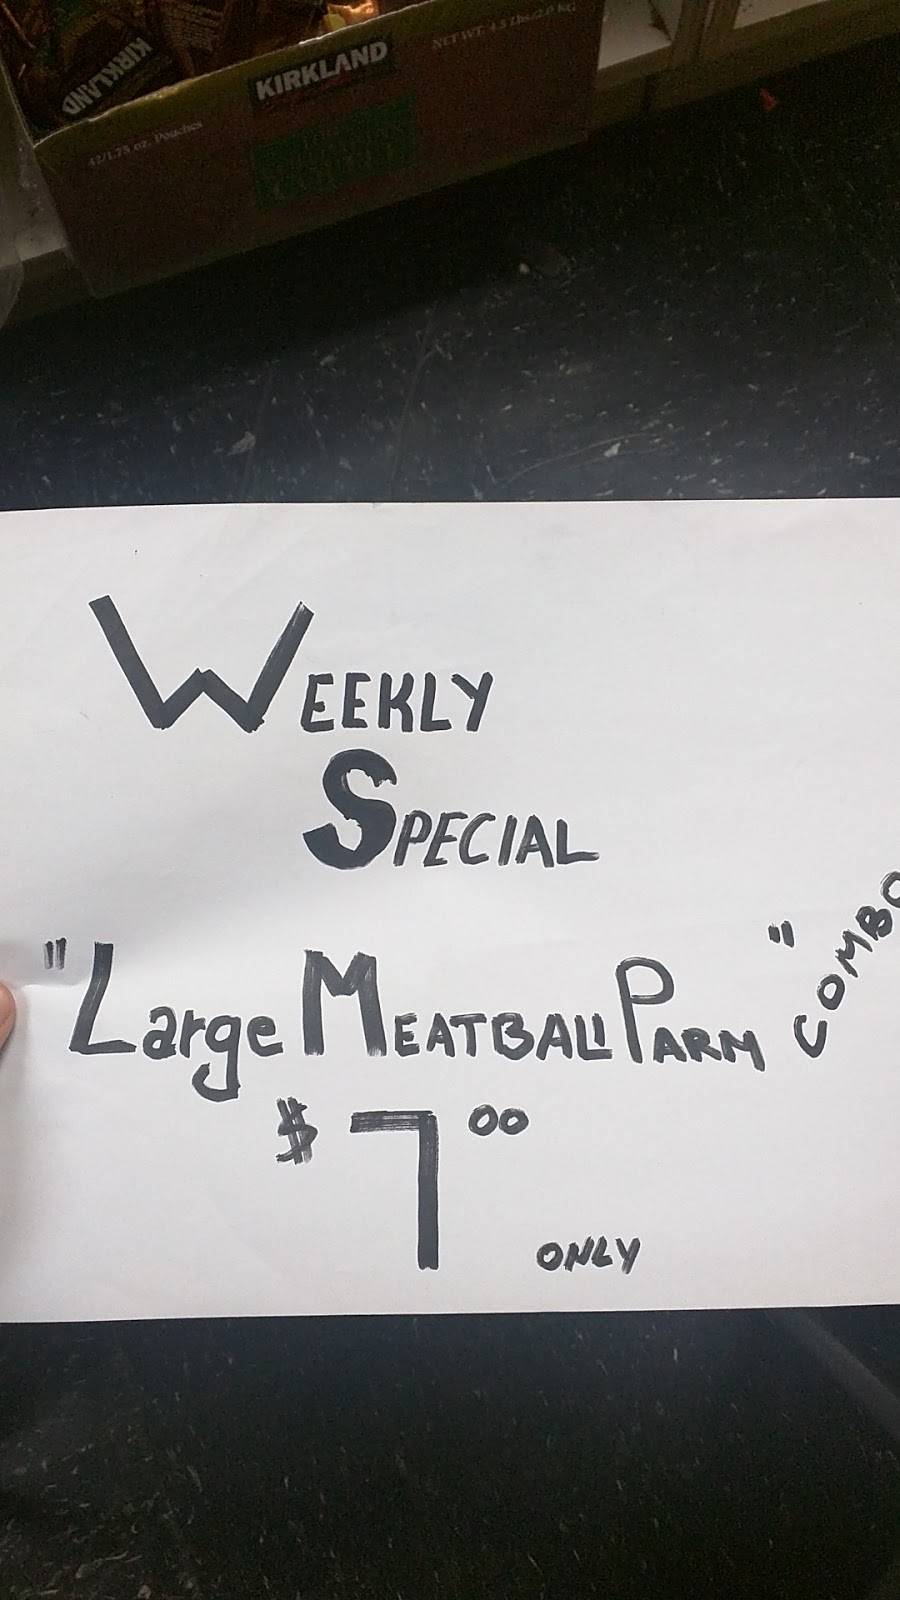 KIRKLAND
KIRKLAND
NET WT. 4.5 Lbs/2.0 KG
42/1.75 oz. Pouches
WEEKLY
SPECIAL
"Large MEATBALL PARM" COMBO
$7.00
ONLY